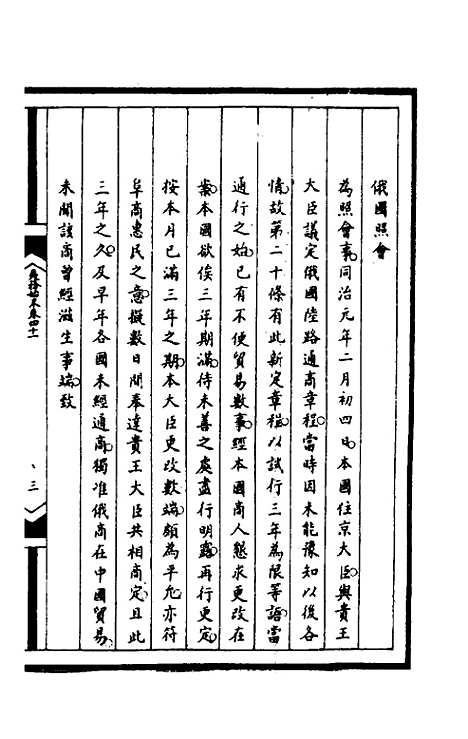 俄國照會
為照會事同治元年二月初四日本國住京大臣與貴王
大臣議定俄國陸路通商章程當時因未能豫知以後各
情故第二十條有此新定章程以試行三年為限等語當
通行之始已有不便貿易數事經本國商人懇求更改在
案本國欲俟三年期滿待未善之處盡行明露再行更定
按本月已滿三年之期本大臣更改數端頗為平允亦符
阜商惠民之意擬數日間奉達貴王大臣共相商定且此
三年之久及早年各國未經通商獨准俄商在中國貿易
未聞該商曾經滋生事端致
夷務始末卷四十一
三